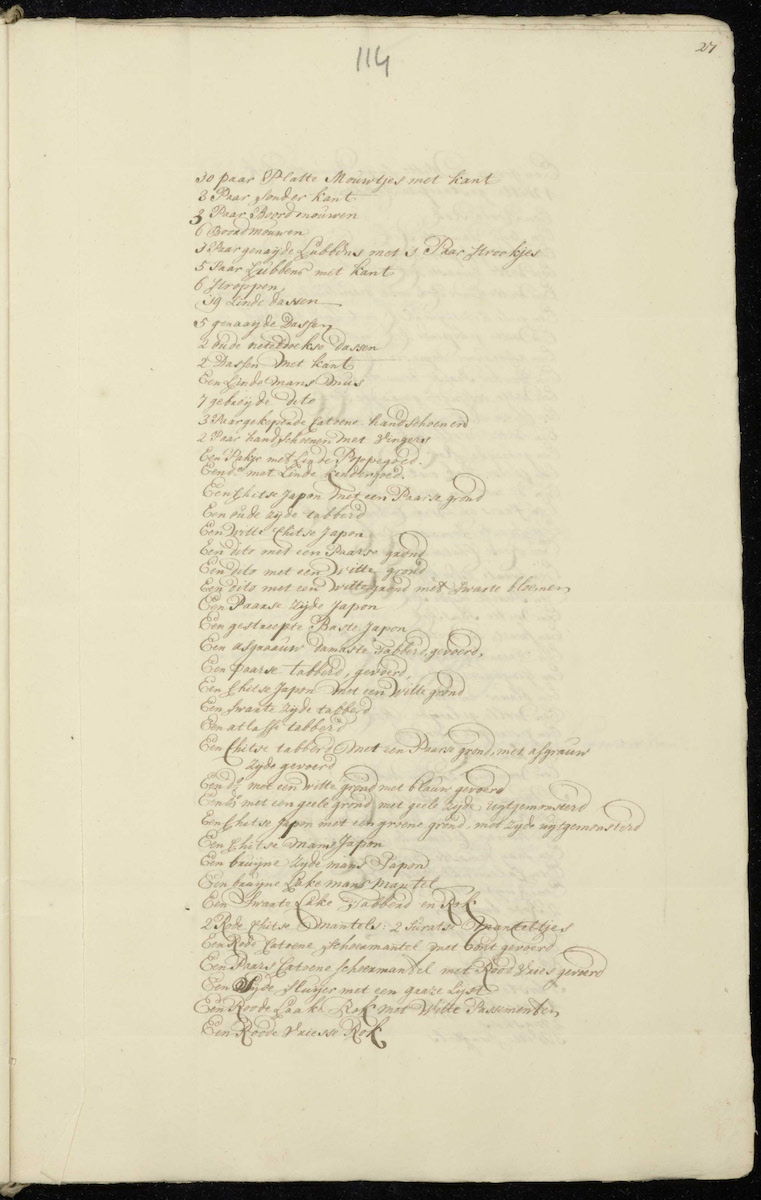 27
114
30 paar Platte Mouwtjes met kant
2 Paar sonder kant
3 Paar Boordmouwen
6 Boordmouwen
3 Paar genaijde Lubbens met 3 Paar strookjes
5 Paar Lubbens met kant
6 stroppen
19 Linde dassen
5 genaaijde Dassen
2 oude neteldoekse dassen
2 Dassen met kant
Een Linde mans Muts
7 gebreijde dito
3 Paar Catoene handschoenen
2 Paar handschoenen met Vingers
Een Pakje met Linde Poppegoed.
Een do. met Linde kindergoed.
Een Chitse Japon met een Paarse grond
Een oude zijde tabberd
Een Witte Chitse Japon
Een dito met een Paarse grond
Een dito met een Witte grond
Een dito met een witte grond met swarte bloemen
Een Paarse zijde Japon
Een gestreepte Baste Japon
Een asgraauw damaste Tabberd, gevoerd,
Een paarse tabberd, gevoerd,
Een Chitse Japon met een Witte grond
Een swarte zijde tabberd
Een atlasse tabberd
Een Chitse tabberd met een Paarse grond, met asgrauw
zijde gevoerd
Een do. met een witte grond met blauw gevoerd
Een do. met een geele grond, met geele zijde, uijtgemonsterd
Een Chitse Japon met een groene grond, met zijde uijtgemonsterd
Een Chitse mans Japon
Een bruijne zijde mans Japon
Een bruijne Lake mans Mantel
Een Swarte Lake Tabberd en Rok
2 Rode Chitse Mantels: 2 Suratse Manteltjes
Een Rode Catoene schoermantel met bont gevoerd
Een Paars Catoene schoermantel met Rood Vries gevoerd
Een Zijde sluijer met een gaaze Lijst
Een Roode Laake Rok met Witte Passementen
Een Roode Vriesse Rok